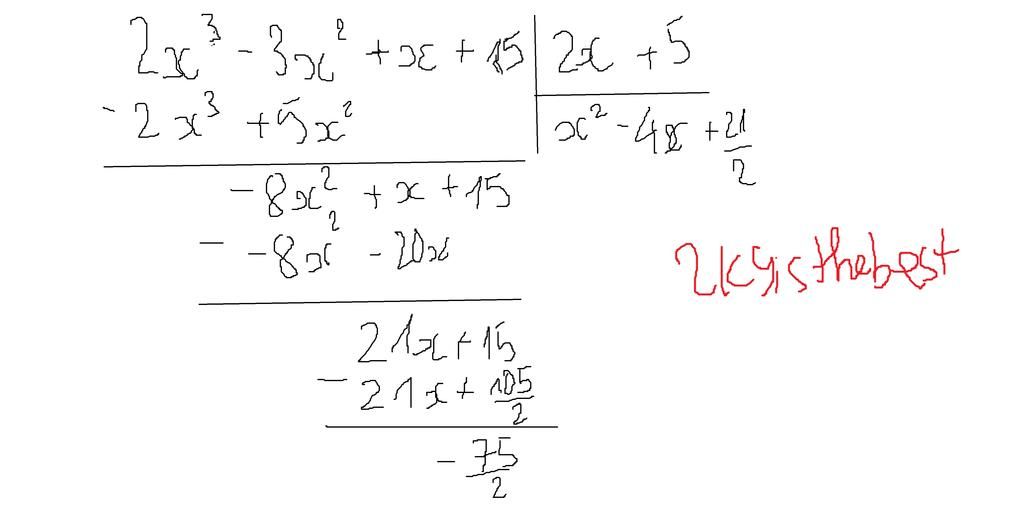 2x³ - 3x² + x + 15 | 2x + 5
- 2x³ + 5x² | x² - 4x + 21/2
- 8x² + x + 15
- -8x² - 20x
21x + 15
- 21x + 105/2
- 75/2